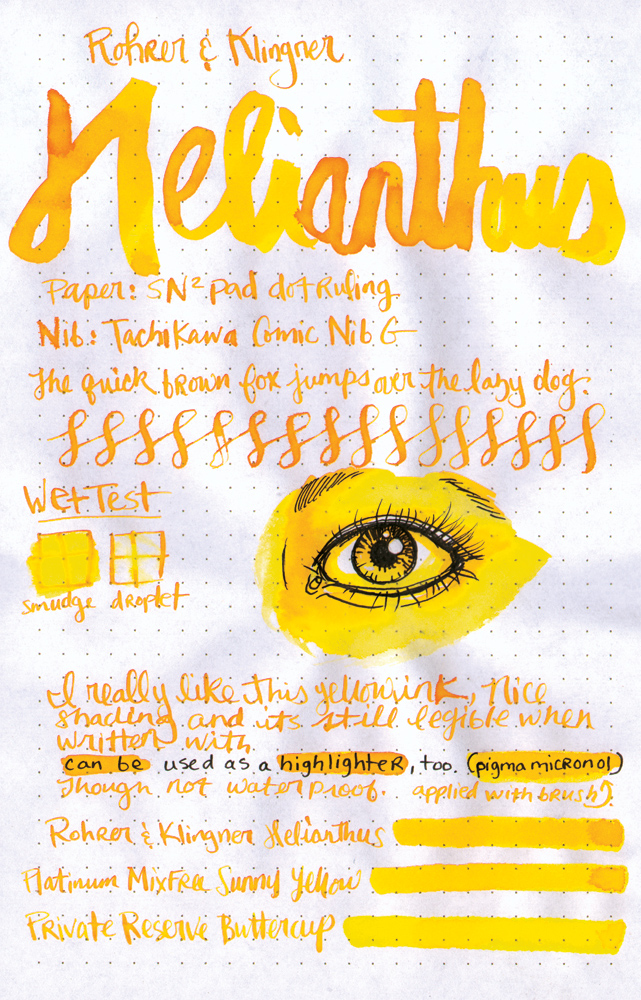 Rohrer & Klingner
Helianthus
Paper: SN² Pad dot Ruling
Nib: Tachikawa Comic Nib G
The quick brown fox jumps over the lazy dog.
Wet Test
smudge droplet
I really like this yellow ink, Nice
shading and its still legible when
written with.
can be used as a highlighter, too. (pigma micron 01)
Though not waterproof. applied with brush
Rohrer & Klingner Helianthus
Platinum MixFree Sunny Yellow
Private Reserve Buttercup